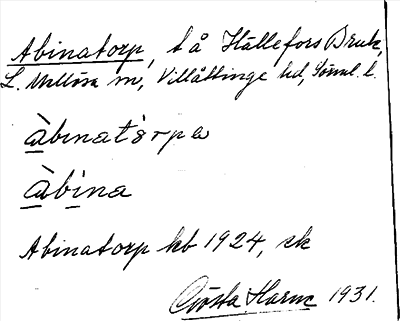 Abinatorp, t å Hällefors Bruk,
L. Mellösa sn, Villåttinge hd, Sörml. l.
àbinatòrpa
àbina
Abinatorp kb 1924, sk
Gösta Harne 1931.